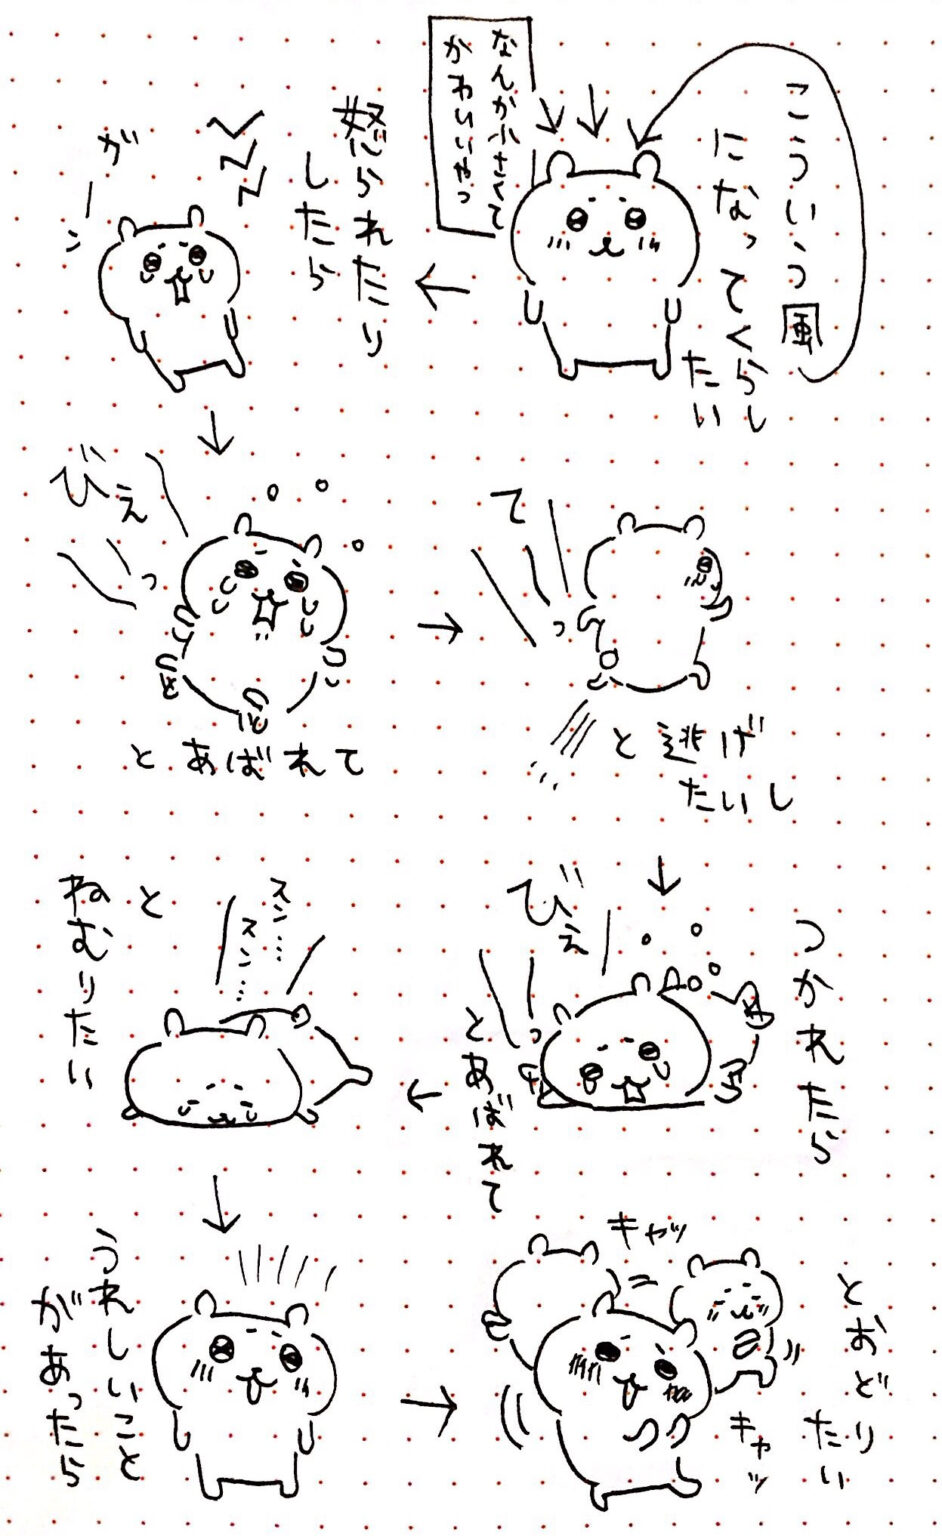 こういう風
になってくらし
たい
なんか小さくて
かわいいやつ
怒られたり
したら
がーン
びえ
っ
とあばれて
て
っ
と逃げ
たいし
つかれたら
びえ
っ
とあばれて
スン…
スン…
と
ねむりたい
うれしいこと
があったら
キャッ
キャッ
とおどり
たい